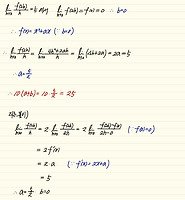 lim h→0 f(2h)/h = 5 이면 lim h→0 f(2h) = f(0) = 0 ∴ b=0
∴ f(x) = x²+ax (∵ b=0)
∴ lim h→0 f(2h)/h = lim h→0 (4h²+2ah)/h = lim h→0 (4h+2a) = 2a = 5
∴ a = 5/2
∴ 10(a+b) = 10·5/2 = 25
lim h→0 f(2h)/h = 2 lim h→0 f(2h)/2h = 2 lim h→0 (f(2h)-f(0))/(2h-0) (∵ f(0)=0)
= 2f'(0)
= 2·a (∵ f'(x) = 2x+a)
= 5
∴ a = 5/2 b=0